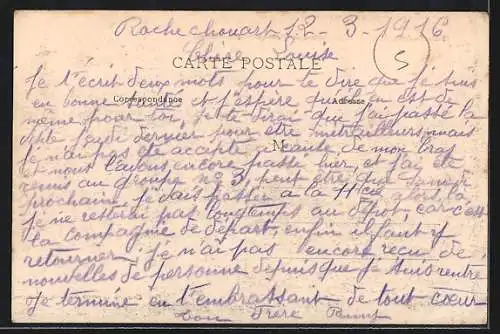 Rochechouart 12 - 3 - 1916
Chère Louise
S
CARTE POSTALE
Correspondance
Adresse
M
Je t'écrit deux mots pour te dire que je suis
en bonne santé et j'espère qu'il en est de
même pour toi, je te dirai que j'ai passé la
visite jeudi dernier pour être mitrailleurs, mais
je n'ai pas été accepté a cause de mon bras
et nous l'avons encore passée hier, et j'ai été
reçus au groupe no 3, peut être que Samedi
prochaine je vais passer a la 11 Cie alors là
je ne resterai pas longtemps au dépot, car c'est
la compagnie de départ, enfin il faut y
retourner. je n'ai pas encore reçu de
nouvelles de personne depuis que je suis rentré
Je termine en t'embrassant de tout cœur
ton Frère